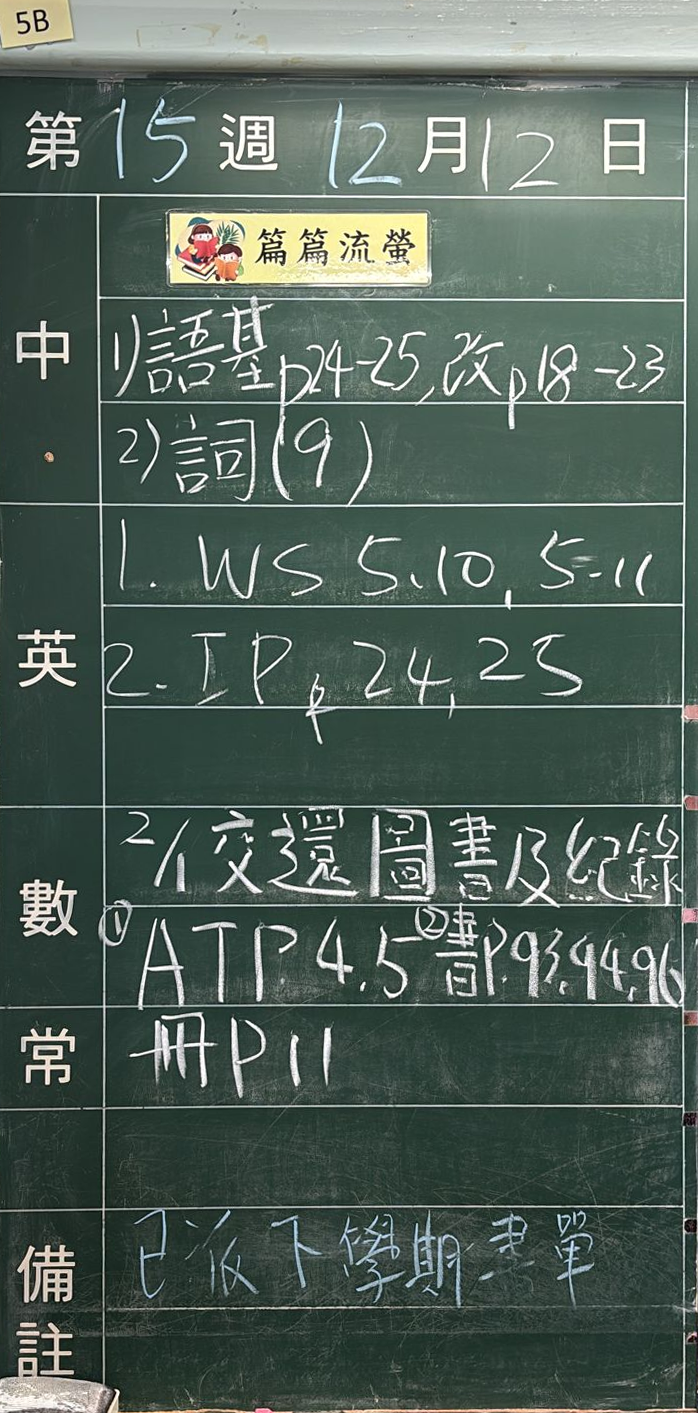 5B
第15週 12月12日
篇篇流螢
中
1)語基p24-25,改p18-23
2)詞(9)
英
1. WS 5.10, 5-11
2. IP p 24, 25
數
2/1交還圖書及紀錄
①ATP.4.5②書P.93,94,96
常
冊P11
備註
已派下學期書單